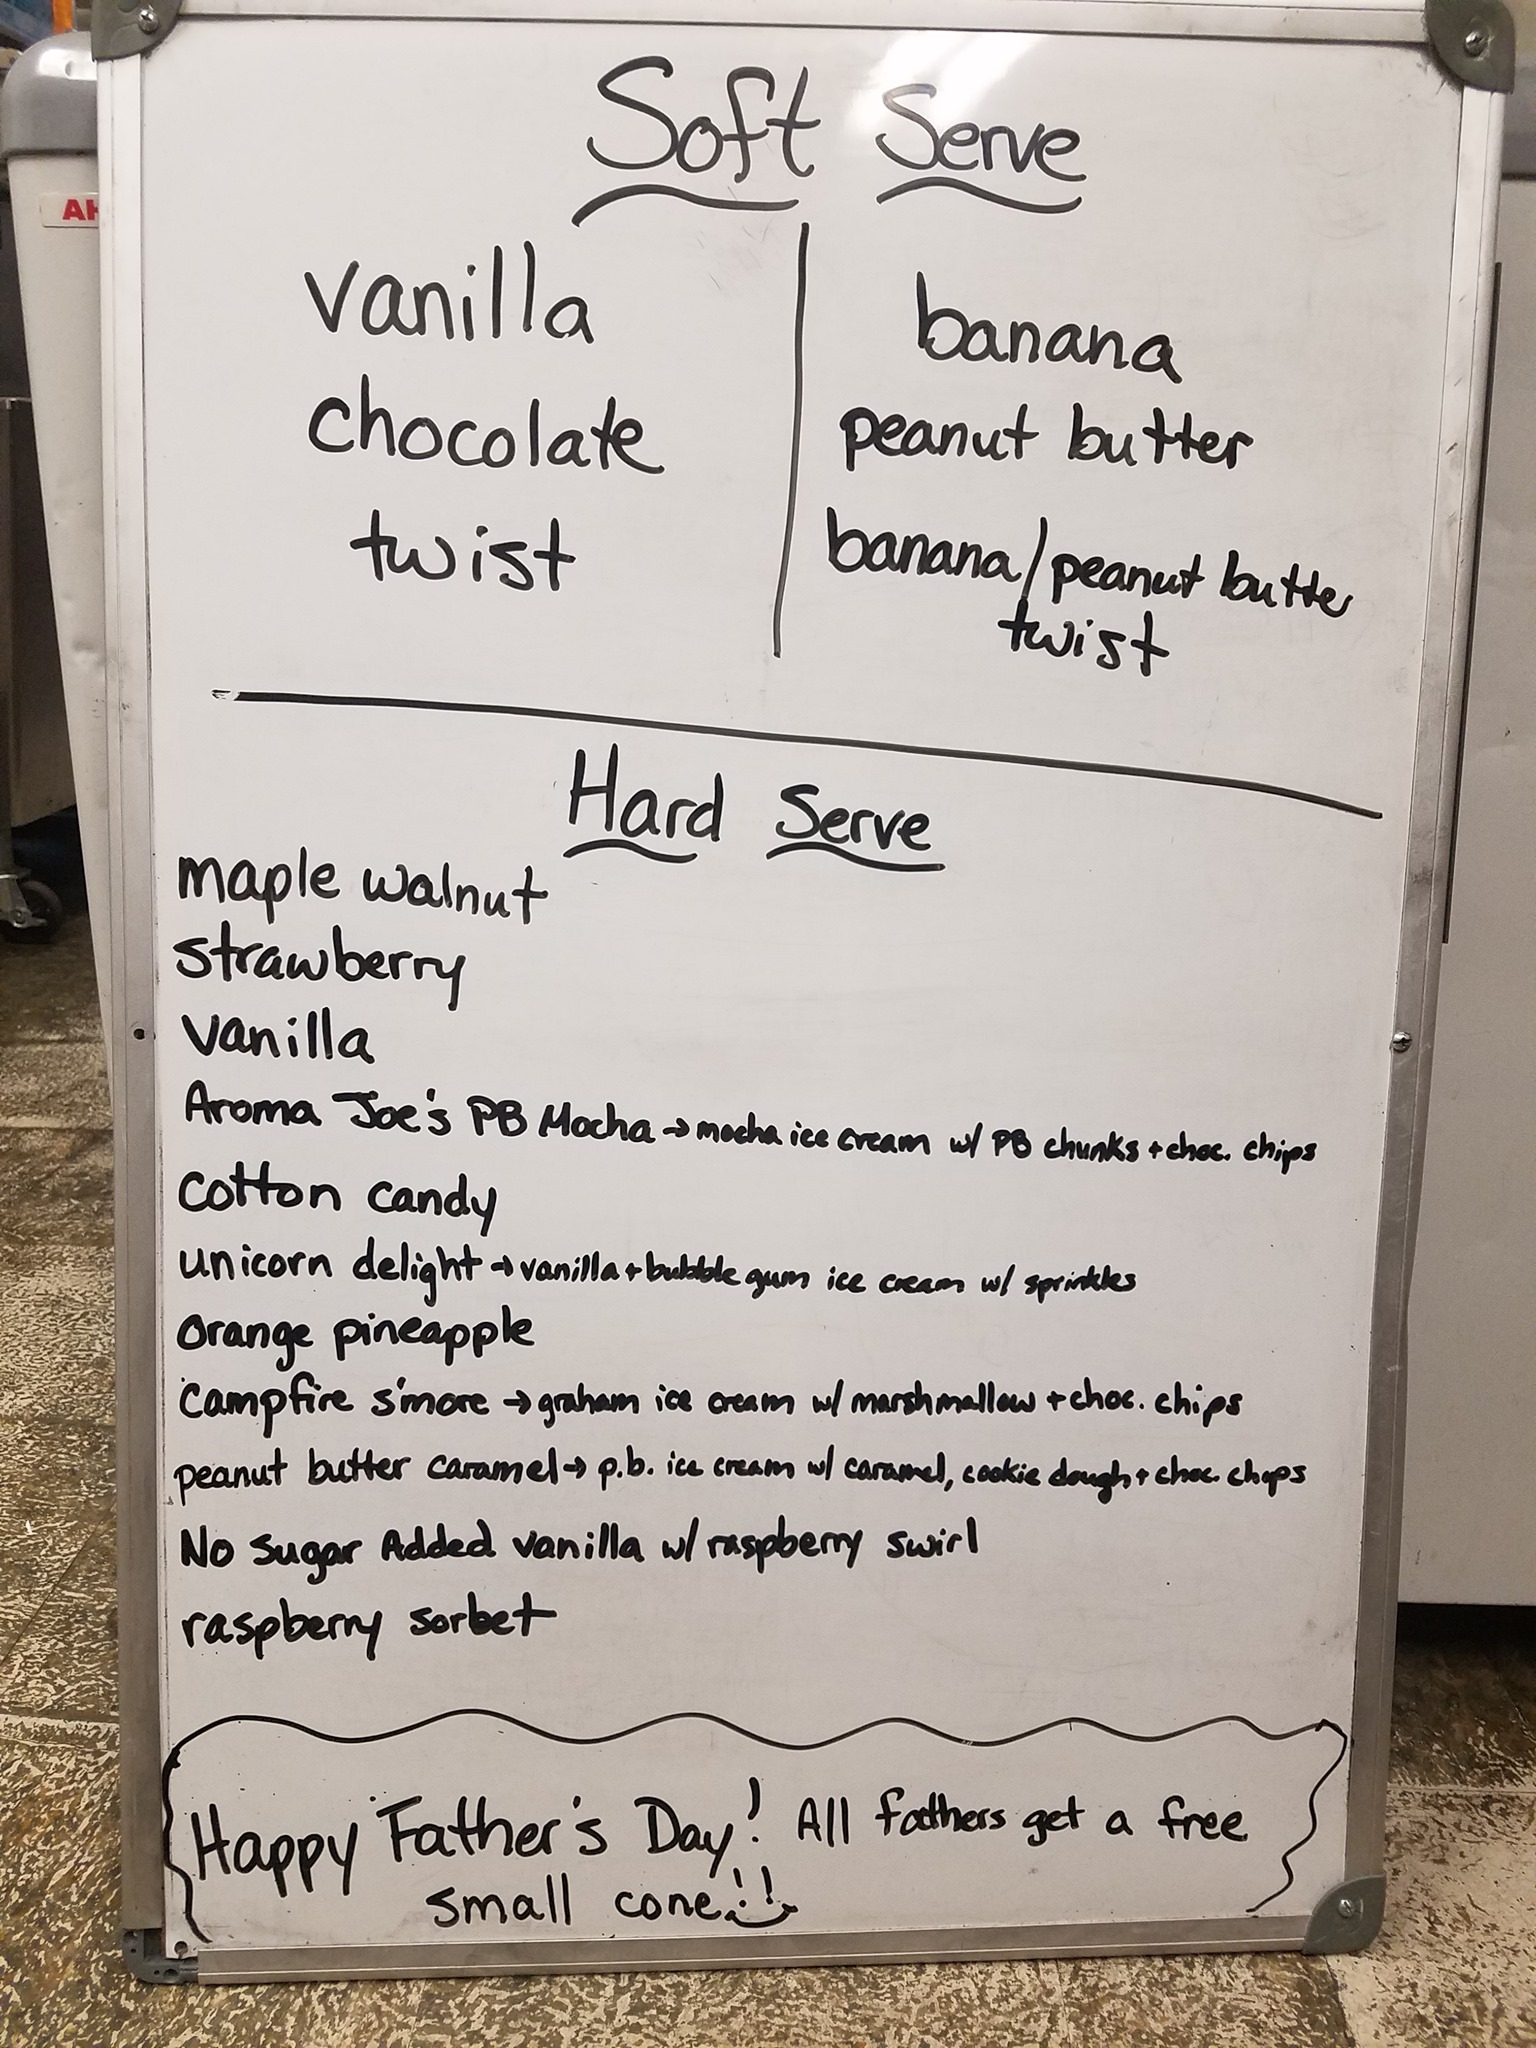 AH
Soft Serve
vanilla
chocolate
twist
banana
peanut butter
banana/peanut butter
twist
Hard Serve
maple walnut
strawberry
vanilla
Aroma Joe's PB Mocha → mocha ice cream w/ PB chunks + choc. chips
cotton candy
unicorn delight → vanilla + bubble gum ice cream w/ sprinkles
Orange pineapple
Campfire s'more → graham ice cream w/ marshmallow + choc. chips
peanut butter caramel → p.b. ice cream w/ caramel, cookie dough + choc. chips
No Sugar Added vanilla w/ raspberry swirl
raspberry sorbet
Happy Father's Day! All fathers get a free
small cone!!